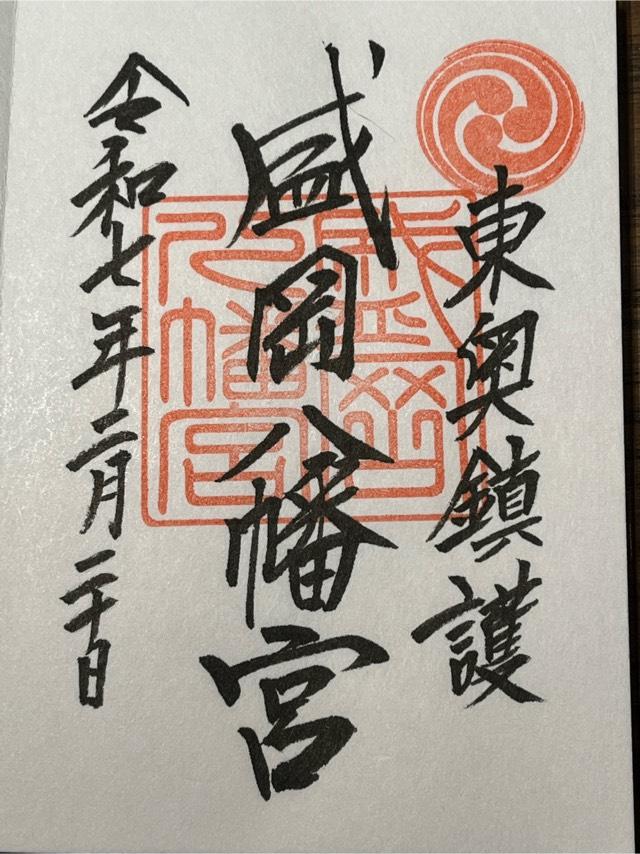 東奥鎮護
盛岡八幡宮
盛岡八幡宮
令和七年二月二十日